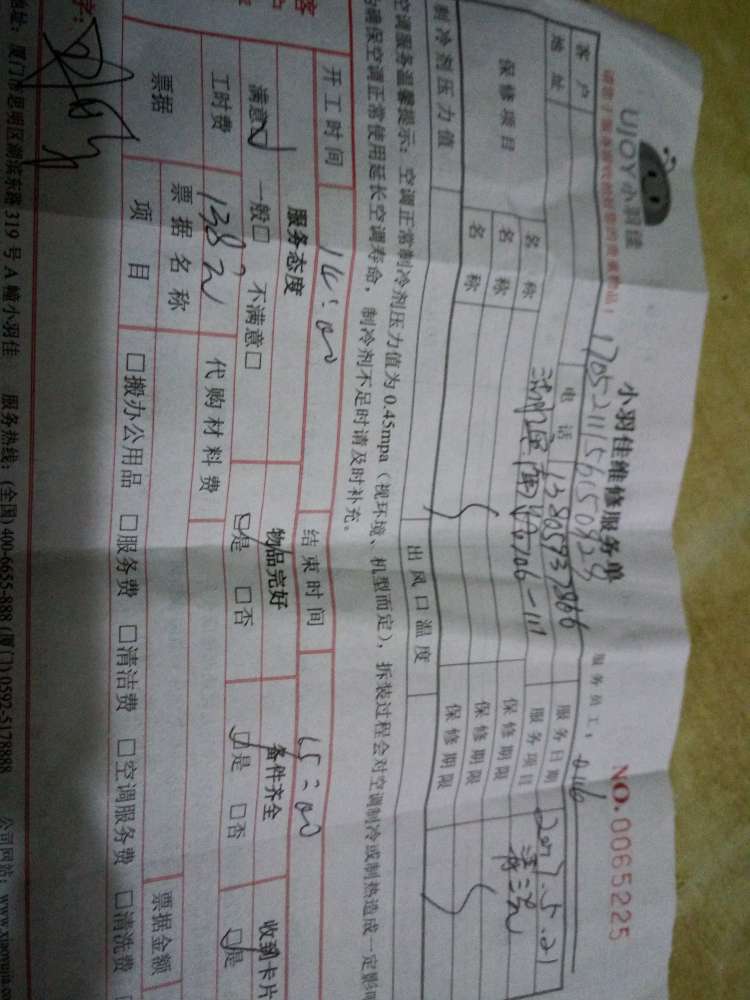 UJOY小羽佳
小羽佳维修服务单
NO.0065225
请您了解
服务员工:
客户
电话 13805937866
服务日期 2017.5.21
地址
服务项目
保修项目
名称
保修期限
名称
保修期限
名称
保修期限
制冷剂压力值
出风口温度
空调服务温馨提示:空调正常制冷剂压力值为0.45mpa(视环境、机型而定),拆装过程会对空调制冷或制热造成一定影响
确保空调正常使用延长空调寿命,制冷剂不足时请及时补充。
开工时间 14:00
结束时间 15:00
服务态度
物品完好
备件齐全
收到卡片
满意☑ 一般□ 不满意□
☑是 □否
☑是 □否
☑是
工时费 138元
代购材料费
票据
票据名称
票据金额
项目
□搬办公用品 □服务费 □清洁费 □空调服务费 □清洗费
地址:厦门市思明区湖滨东路319号A幢小羽佳 服务热线:(全国)400-6655-888(厦门)0592-5178888 公司网站: